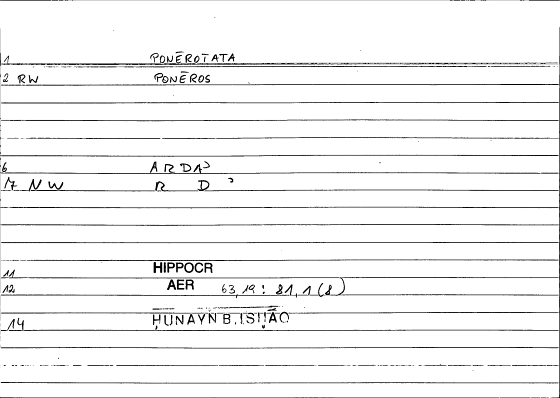 1 PONĒROTATA
2 RW PONĒROS
6 ARDAʾ
17 NW R D ʾ
11 HIPPOCR
12 AER 63,19 : 81,1 (8)
14 ḤUNAYN B. ISḤĀQ